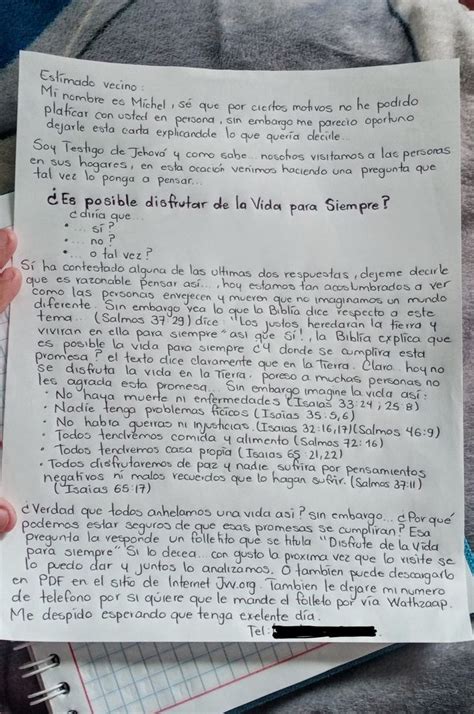 Estimado vecino:
Mi nombre es Michel, sé que por ciertos motivos no he podido
platicar con usted en persona, sin embargo me parecio oportuno
dejarle esta carta explicandole lo que quería decirle...
Soy Testigo de Jehová y como sabe... nosotros visitamos a las personas
en sus hogares, en esta ocación venimos haciendo una pregunta que
tal vez lo ponga a pensar...
¿Es posible disfrutar de la Vida para Siempre?
¿diría que...
• ... sí?
• ... no?
• ... o tal vez?
Sí ha contestado alguna de las ultimas dos respuestas, dejeme decirle
que es razonable pensar así... hoy estamos tan acostumbrados a ver
como las personas envejecen y mueren que no imaginamos un mundo
diferente. Sin embargo vea lo que la Biblia dice respecto a este
tema... (Salmos 37:29) dice: "Los justos heredaran la tierra y
viviran en ella para siempre" así que Sí!, la Biblia explica que
es posible la vida para siempre ¿Y donde se cumplira esta
promesa? el texto dice claramente que en la Tierra. Claro hoy no
se disfruta la vida en la Tierra, poreso a muchas personas no
les agrada esta promesa... Sin embargo imagine la vida así:
• No haya muerte ni enfermedades (Isaías 33:24; 25:8)
• Nadie tenga problemas físicos (Isaías 35:5,6)
• No habra guerras ni injusticias. (Isaías 32:16,17) (Salmos 46:9)
• Todos tendremos comida y alimento (Salmos 72:16)
• Todos tendremos casa propia (Isaías 65:21,22)
• Todos disfrutaremos de paz y nadie sufrira por pensamientos
negativos ni malos recuerdos que lo hagan sufrir. (Salmos 37:11)
(Isaías 65:17)
¿Verdad que todos anhelamos una vida así? sin embargo... ¿Por qué
podemos estar seguros de que esas promesas se cumpliran? Esa
pregunta la responde un folletito que se titula "Disfrute de la Vida
para siempre" Si lo decea... con gusto la proxima vez que lo visite se
lo puedo dar y juntos lo analizamos. O tambien puede descargarlo
en PDF en el sitio de Internet Jw.org. Tambien le dejare mi numero
de telefono por si quiere que le mande el folleto por vía Wathzaap.
Me despido esperando que tenga exelente día.
Tel: